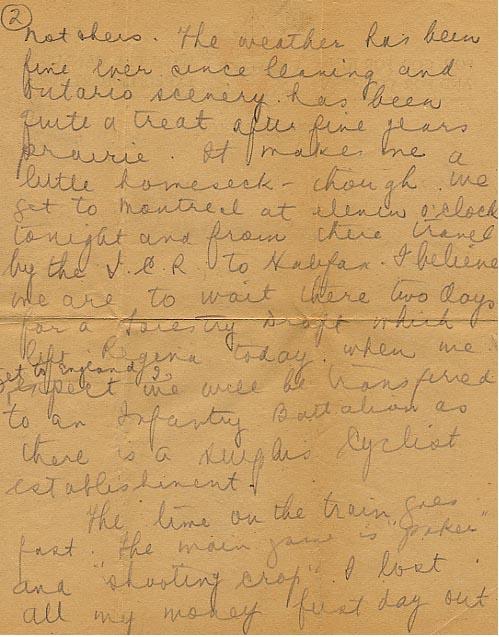 ②
not theirs. The weather has been
fine ever since leaving and
Ontario scenery has been
quite a treat after five years
prairie. It makes me a
little homeseck - though. We
get to Montreal at eleven o'clock
tonight and from there travel
by the I.C.R. to Halifax. I believe
we are to wait there two days
for a Forestry Draft which
left Regina today. when we
get to England
expect we will be transferred
to an Infantry Battalion as
there is a surplus Cyclist
establishment.
The time on the train goes
fast. The main game is "poker"
and "shooting crap". I lost
all my money first day out